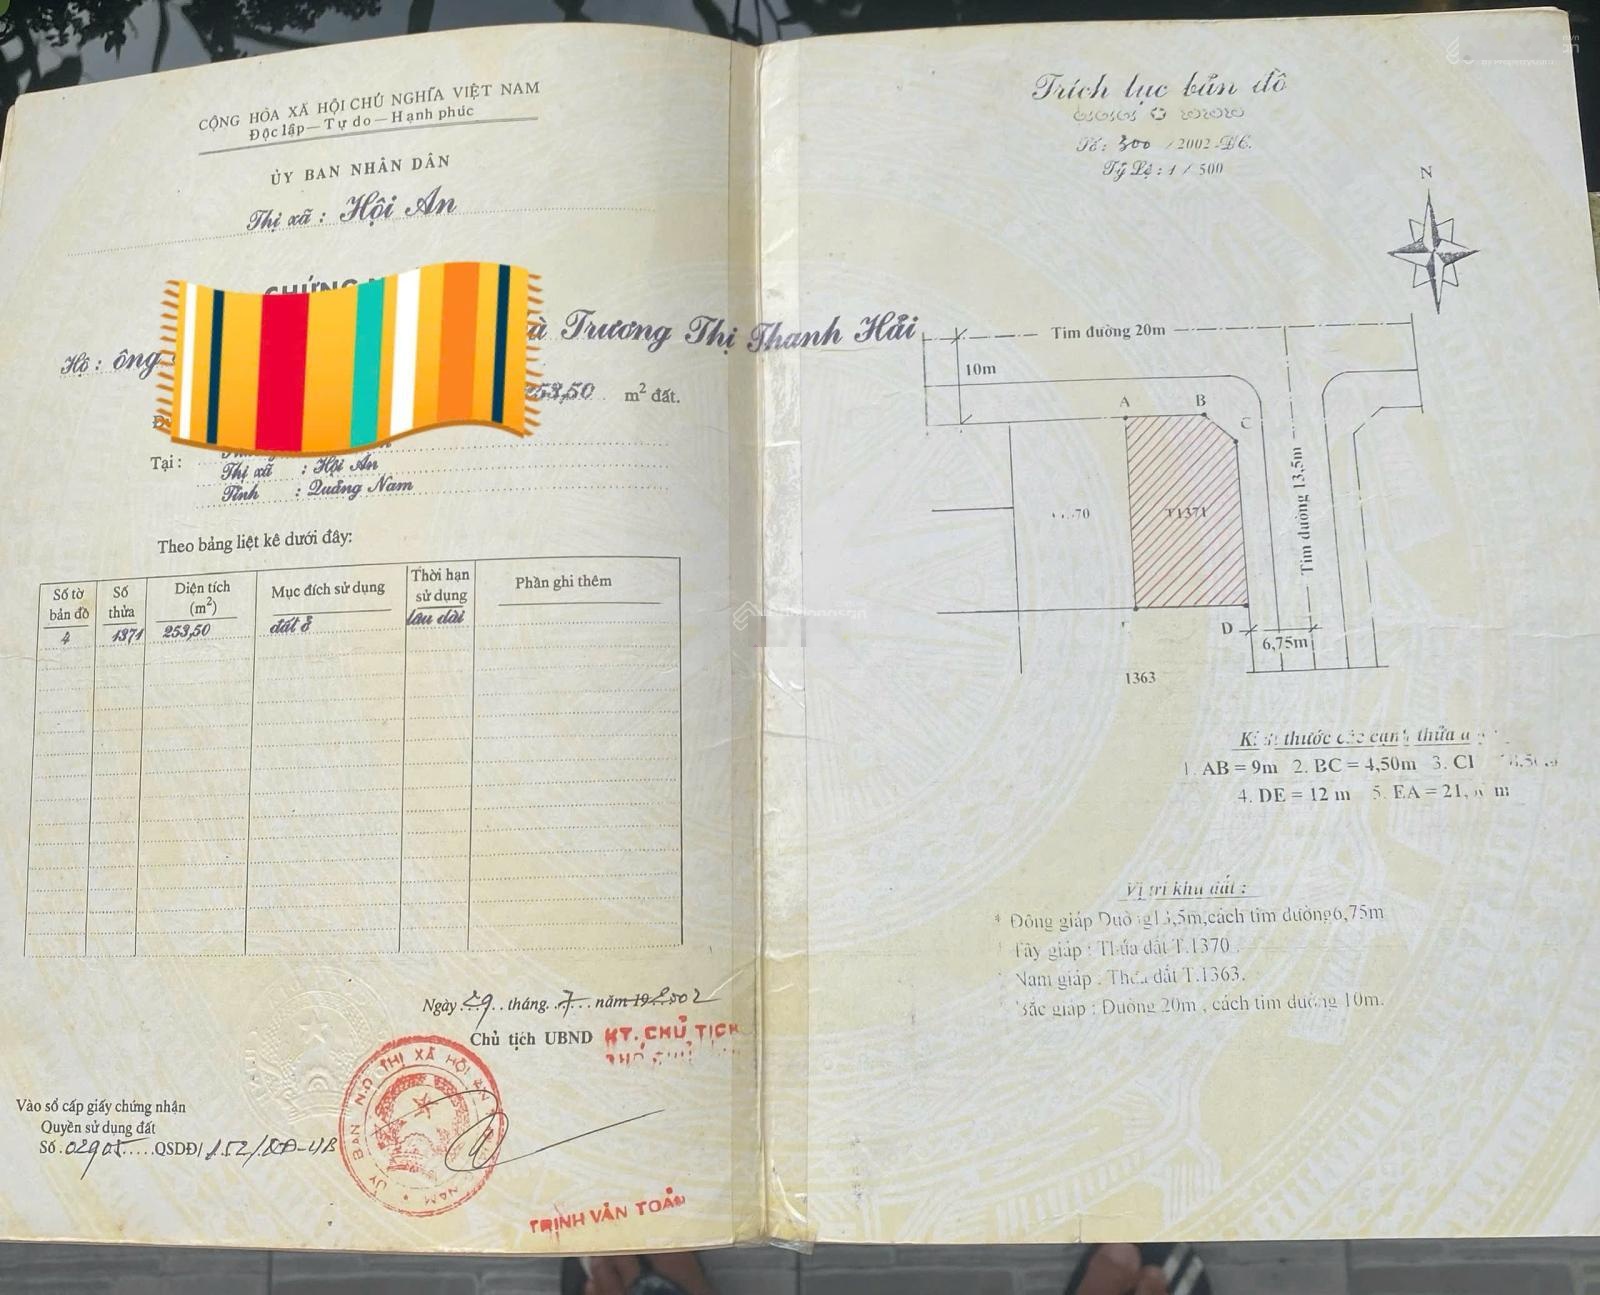 CỘNG HÒA XÃ HỘI CHỦ NGHĨA VIỆT NAM
Độc lập — Tự do — Hạnh phúc
ỦY BAN NHÂN DÂN
Thị xã : Hội An
Hộ : ông
Trương Thị Thanh Hải
253,50 m² đất.
Tại :
Thị xã : Hội An
Tỉnh : Quảng Nam
Theo bảng liệt kê dưới đây:
Số tờ bản đồ Số thửa Diện tích (m²) Mục đích sử dụng Thời hạn sử dụng Phần ghi thêm
4 1371 253,50 đất ở lâu dài
Ngày 29 tháng 7 năm 19 2002
Chủ tịch UBND KT. CHỦ TỊCH
Vào sổ cấp giấy chứng nhận
Quyền sử dụng đất
Số 02905 QSDĐ/ 152/QĐ-UB
TRỊNH VĂN TOẢN
Trích lục bản đồ
Số: 300 / 2002 - ĐC.
Tỷ Lệ : 1 / 500
N
Tim đường 20m
10m
A
B
C
Tim đường 13,5m
T1371
D
6,75m
1363
1. AB = 9m 2. BC = 4,50m 3.
4. DE = 12 m 5. EA =
Vị trí khu đất :
* Đông giáp Đường 13,5m,cách tim đường6,75m
Tây giáp : Thửa đất T.1370 .
Nam giáp . Thửa đất T.1363.
Bắc giáp : Đường 20m , cách tim đường 10m.